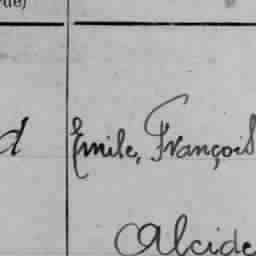 d Emile, François
Alcide